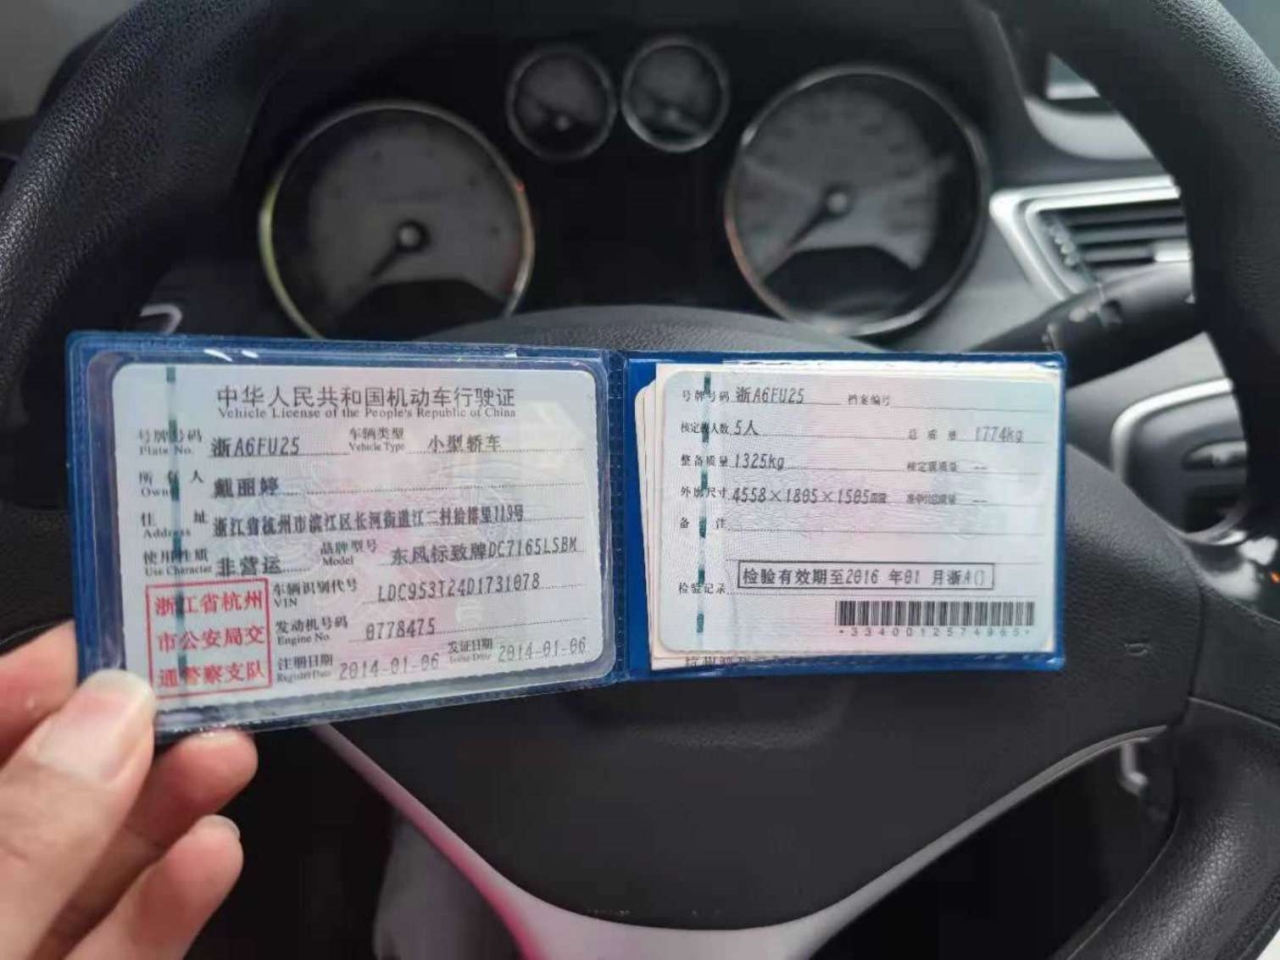 中华人民共和国机动车行驶证
Vehicle License of the People's Republic of China
号牌号码 浙A6FU25 车辆类型 小型轿车
Plate No. Vehicle Type
所有人 戴丽婷
Owner
住址 浙江省杭州市滨江区长河街道江二村
Address
使用性质 非营运 品牌型号 东风标致牌DC7165LSBM
Use Character Model
浙江省杭州
市公安局交
通警察支队
车辆识别代号 LDC953T24D1731078
VIN
发动机号码 0778475
Engine No.
注册日期 2014-01-06 发证日期 2014-01-06
Register Date Issue Date
号牌号码 浙A6FU25 档案编号
核定载人数 5人 总质量 1774kg
整备质量 1325kg 核定载质量 --
外廓尺寸 4558×1805×1505mm 准牵引总质量 --
备注
检验记录 检验有效期至2016年01月浙A()
*3340012574965*